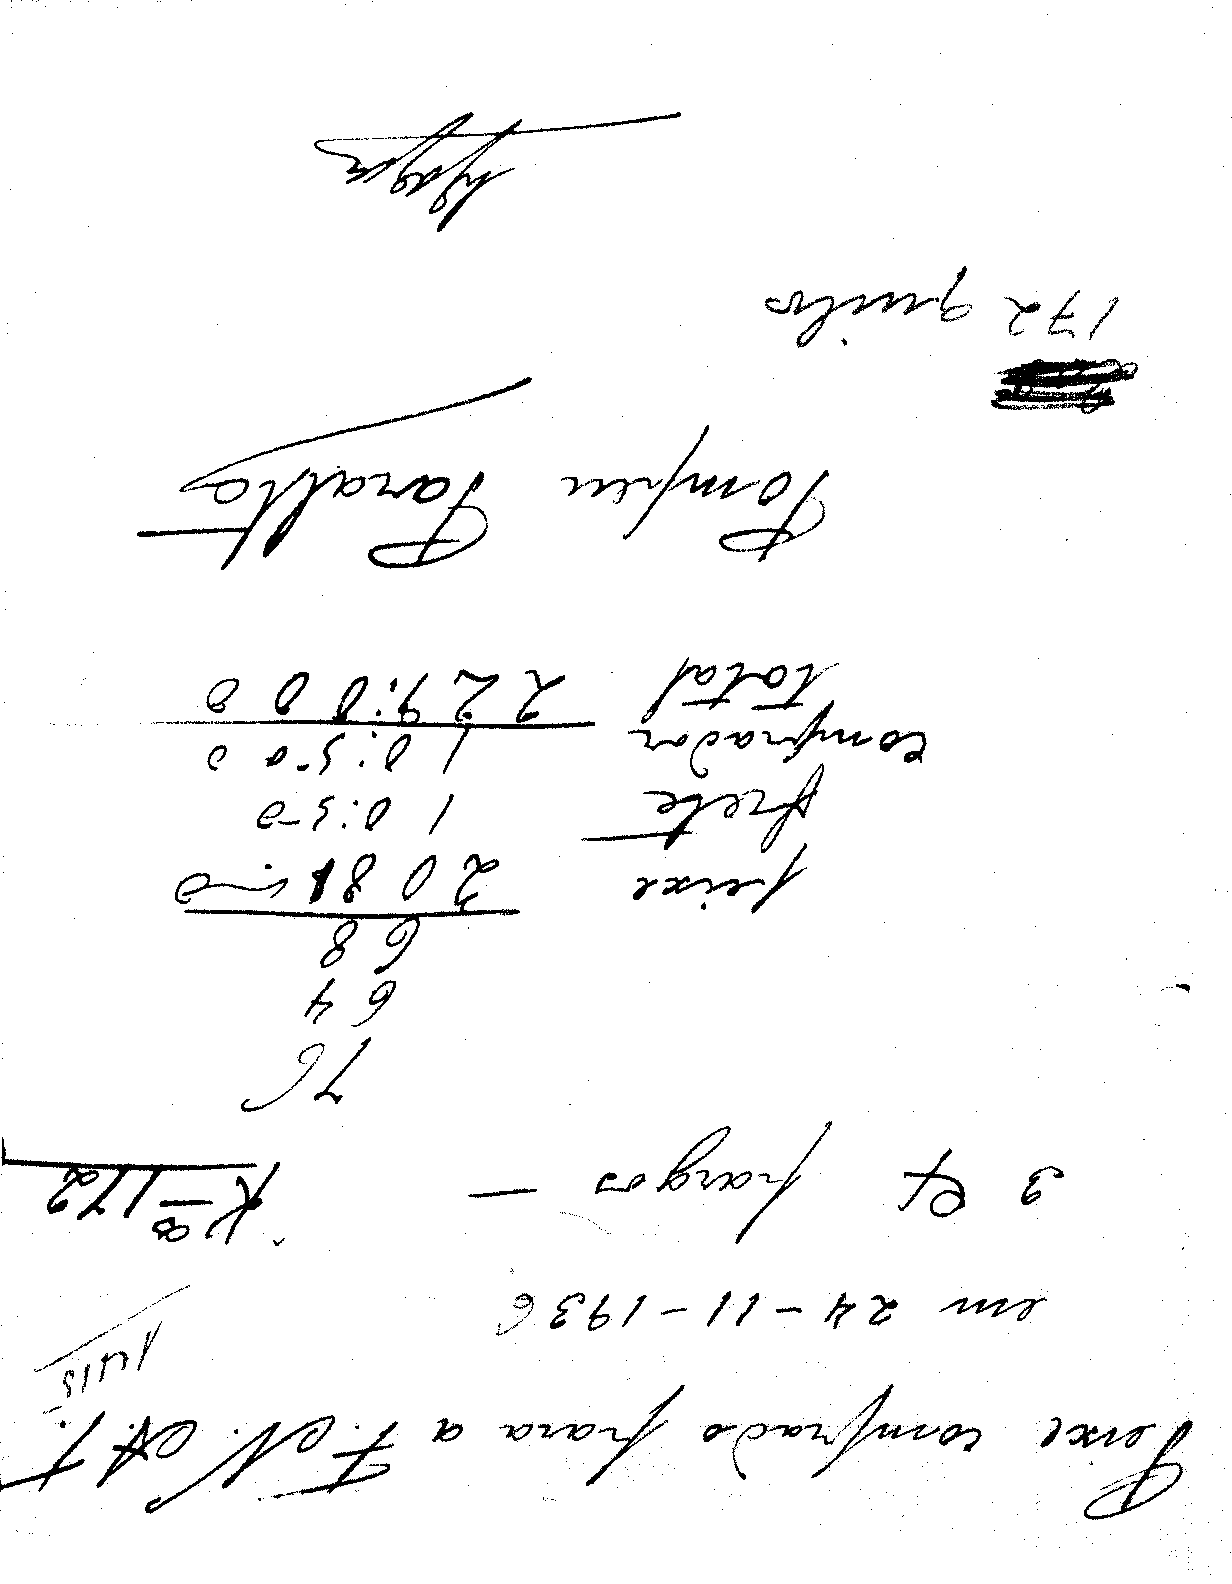 Peixe comprado para a F. N. A. T.
em 24-11-1936
3 Cx pargos — Kos 172
76
64
68
peixe 208
frete 10:50
comprador 10:500
total 229:000
Pompeu Faralto
172 quilos